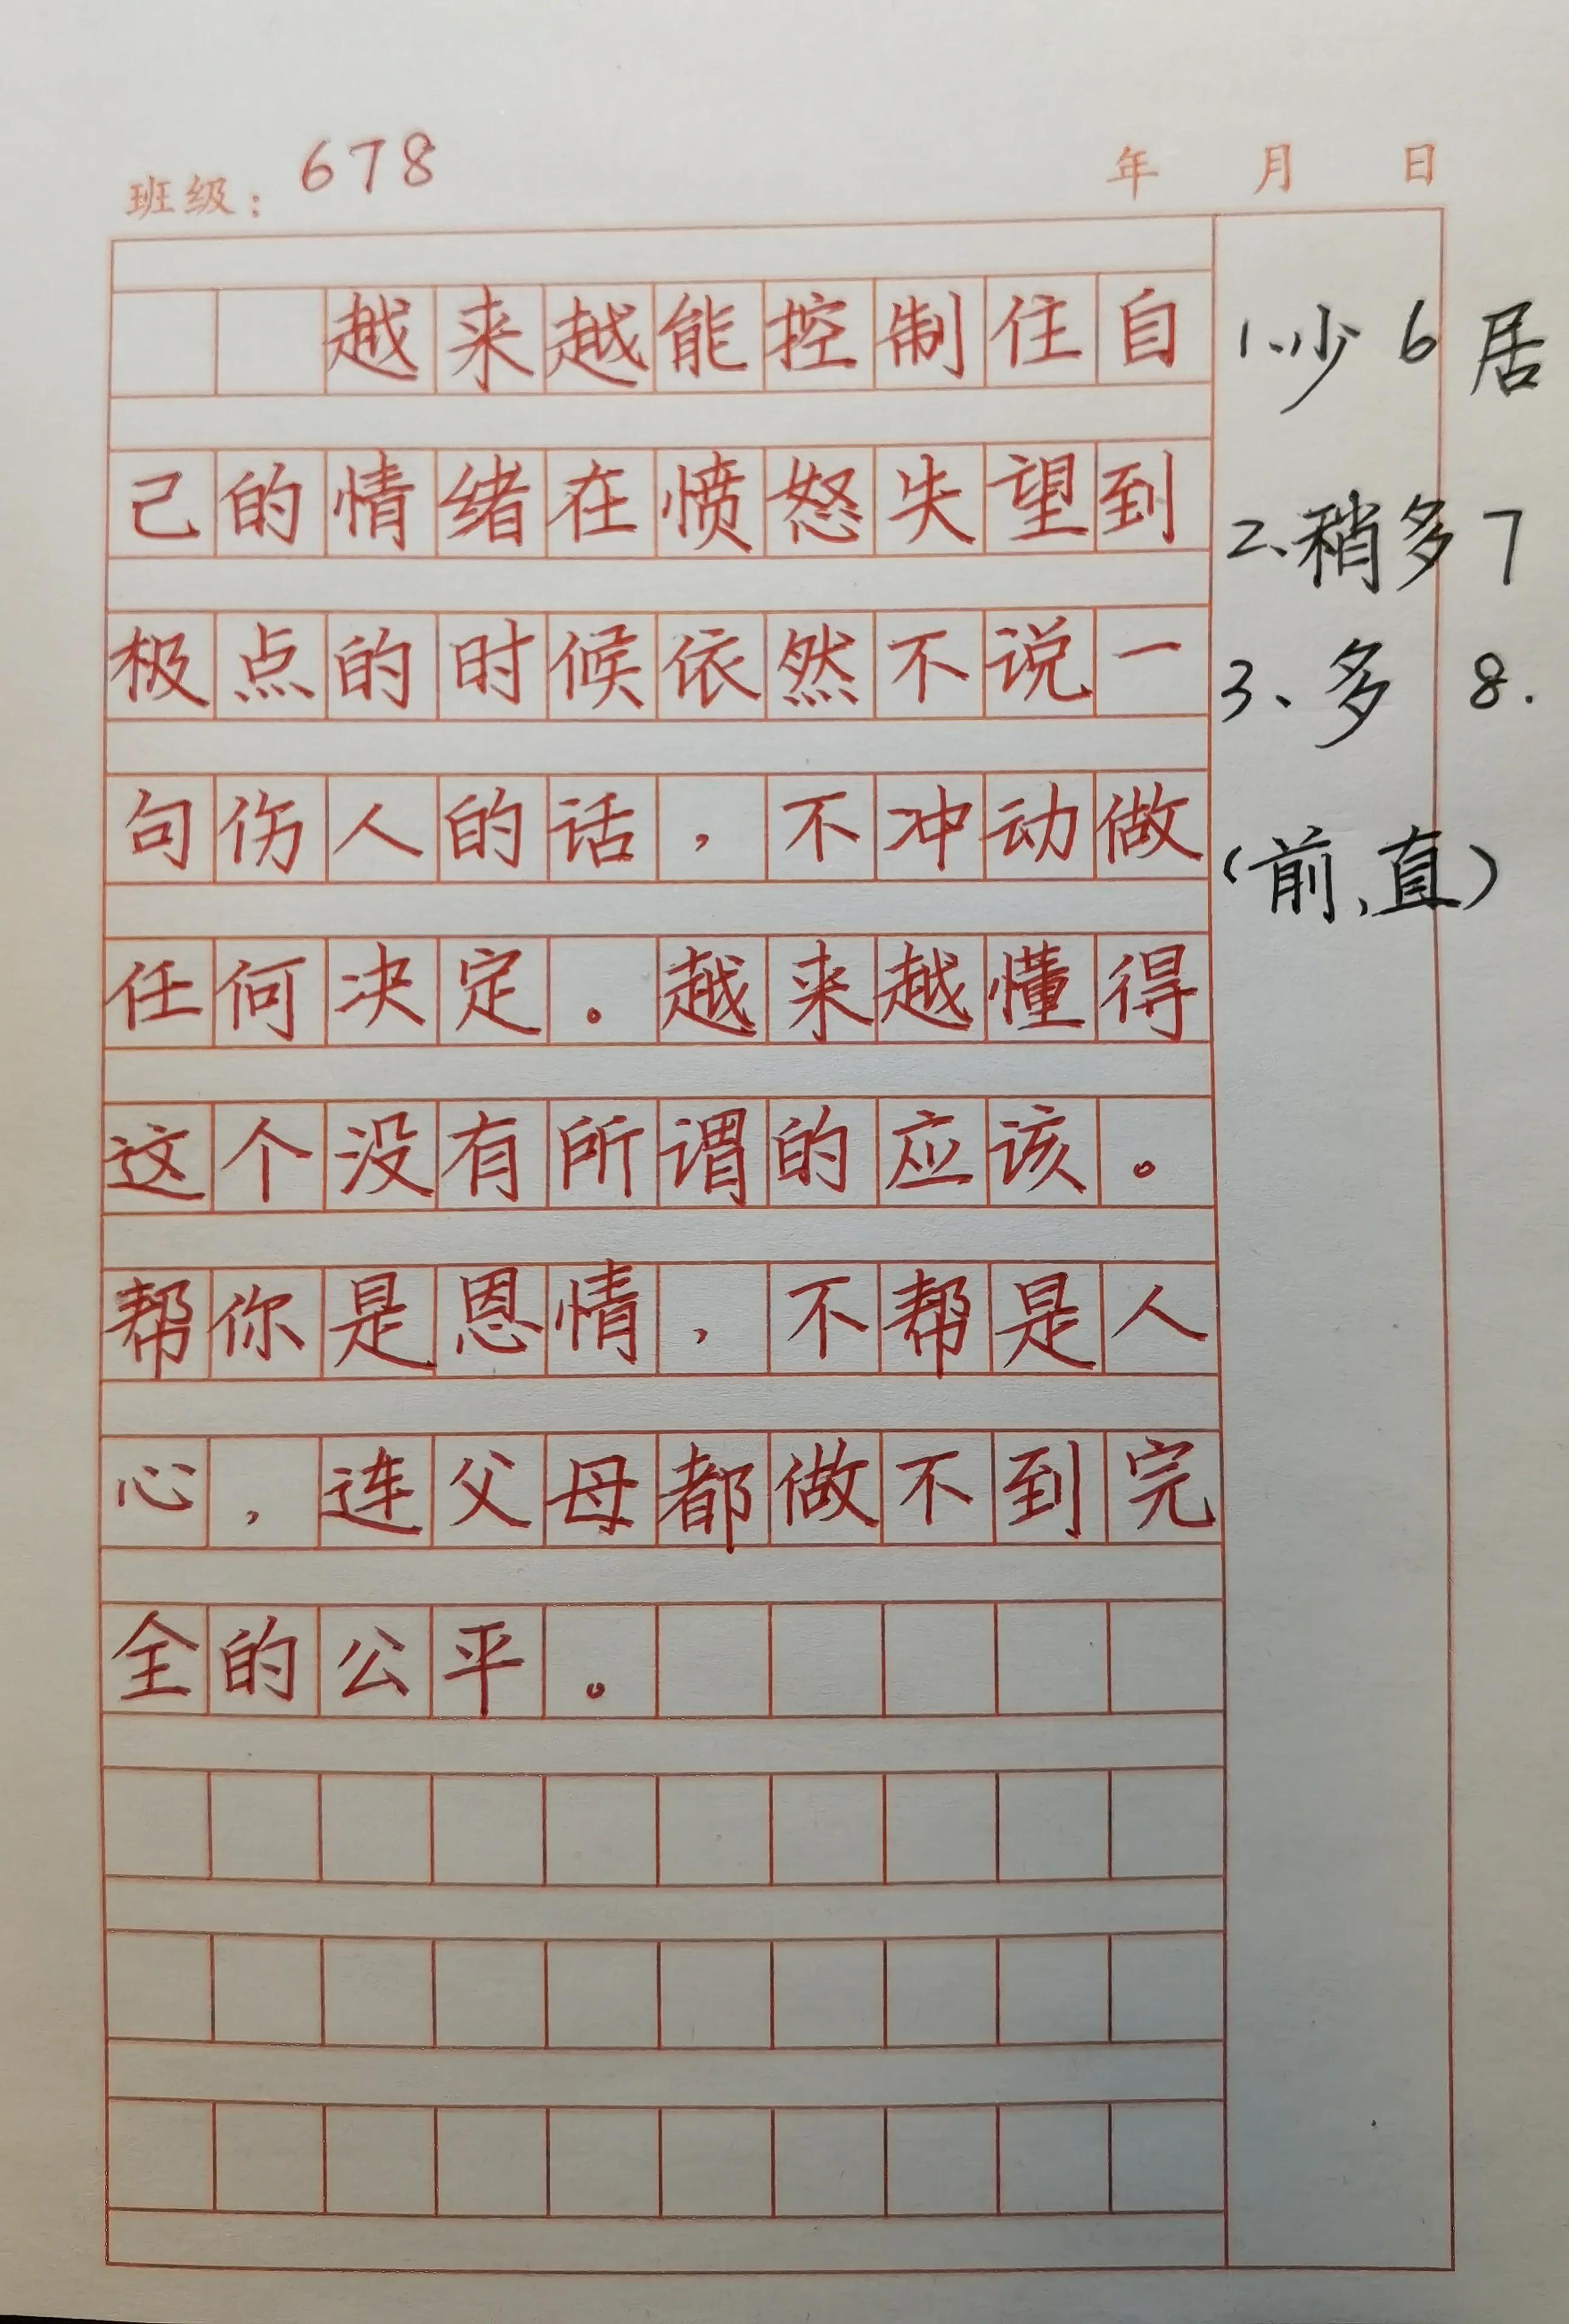 班级：678 年 月 日
越来越能控制住自
己的情绪在愤怒失望到
极点的时候依然不说一
句伤人的话，不冲动做
任何决定。越来越懂得
这个没有所谓的应该。
帮你是恩情，不帮是人
心，连父母都做不到完
全的公平。
1、少 6 居
2、稍多 7
3、多 8.
（前、直）